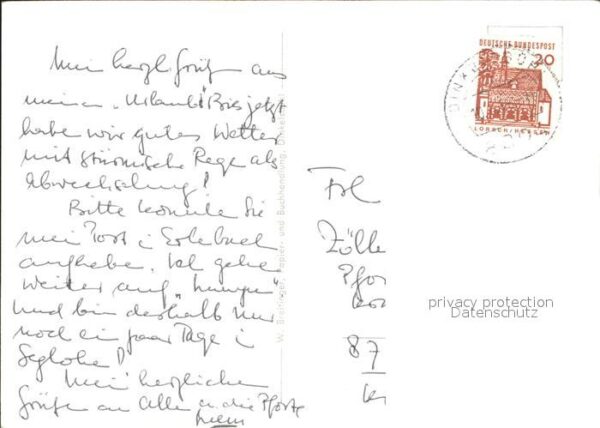 Mein herzl. Grüße aus
meinem „Urlaub"! Bis jetzt
habe wir gutes Wetter
mit stürmische Rege als
Abwechslung!
Bitte könnte Sie
mein Post i
aufhebe. Ich gehe
weiter auf
und bin deshalb nur
noch ein paar Tage i
Mein herzliche
Grüße an alle a. die Pforte
Frl
Zölle
Pfor
87
DEUTSCHE BUNDESPOST
20
LORSCH/HESSEN
DINK
Papier- und Buchhandlung,
privacy protection
Datenschutz